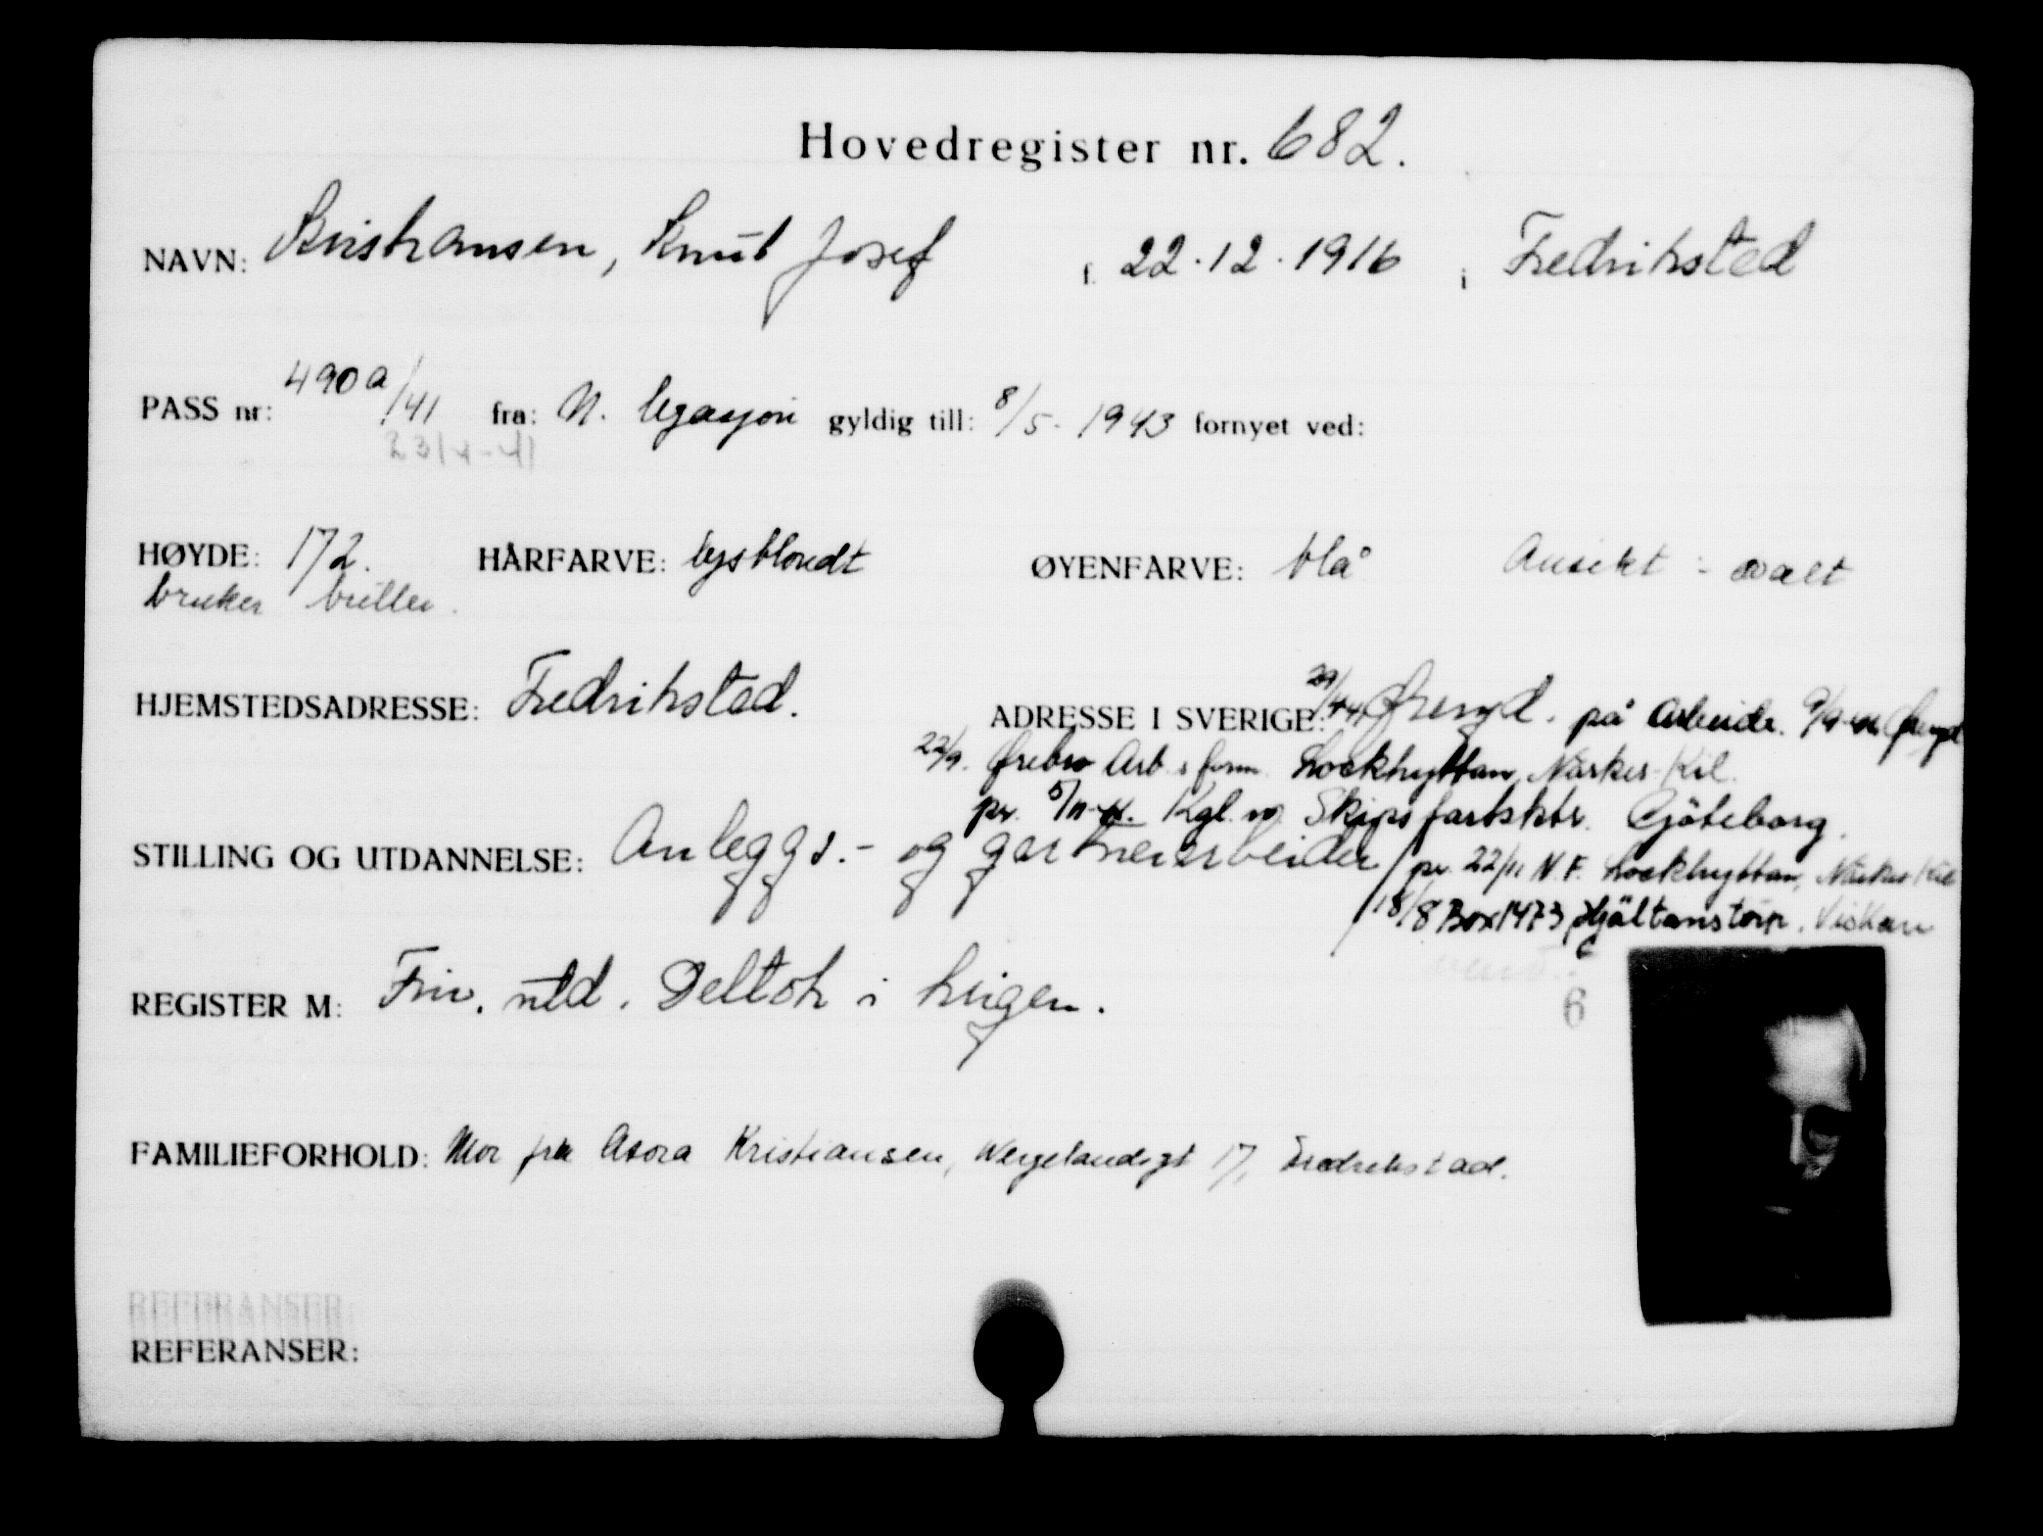 Hovedregister nr. 682.
NAVN: Kristiansen, Knut Josef f. 22.12.1916 i Fredrikstad
PASS nr: 490a/41 fra: N. legasjon gyldig till: 8/5-1943 fornyet ved:
23/4-41
HØYDE: 172. HÅRFARVE: lysblondt ØYENFARVE: blå Ansikt: ovalt
bruker briller.
HJEMSTEDSADRESSE: Fredrikstad. ADRESSE I SVERIGE: Øreryd. på Arbeide. Øreryd
22/9. Ørebro Arb. Lockhyttan, Närkes-Kil.
pr. 5/11-41. Kgl. no. Skipsfartsktr. Gjöteborg.
STILLING OG UTDANNELSE: Anleggs.- og gartnerarbeider / pr. 22/11 N.F. Lockhyttan, Närkes Kil
18/8 Box 1473 Hjältanstorp, Viskan
REGISTER M: Friv. utd. Deltok i krigen.
6
FAMILIEFORHOLD: Mor fru Asora Kristiansen, Wergelandsgt 17, Fredrikstad.
REFERANSER
REFERANSER: